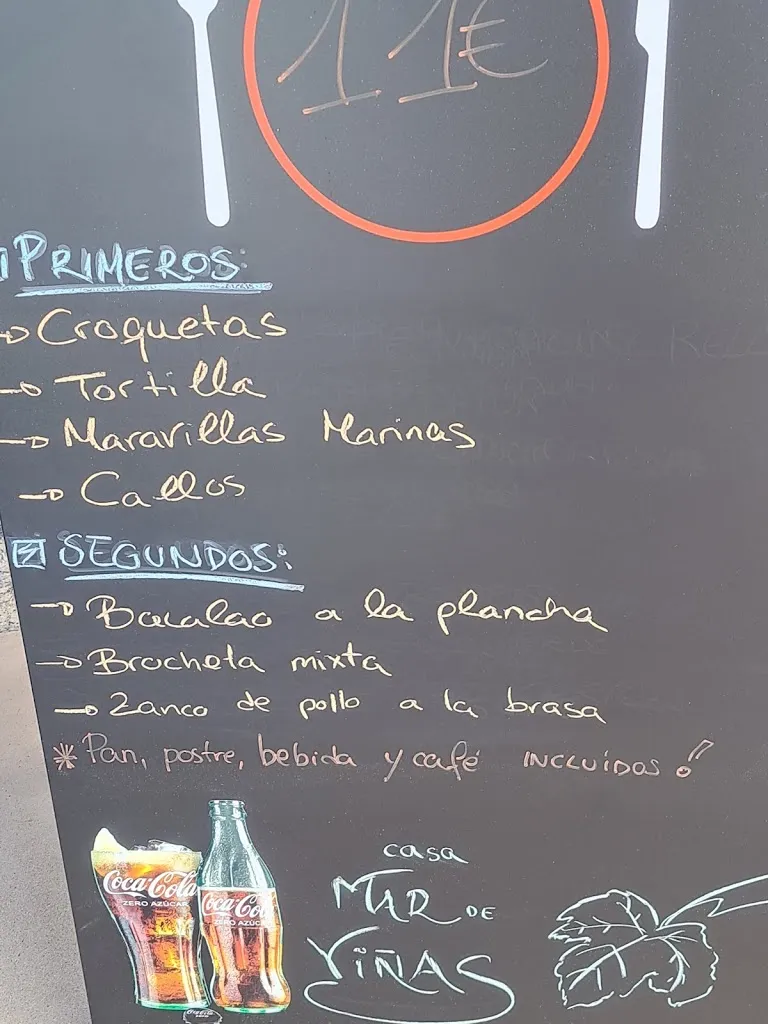 11€
PRIMEROS:
Croquetas
Tortilla
Maravillas Marinas
Callos
SEGUNDOS:
Bacalao a la plancha
Brocheta mixta
Zanco de pollo a la brasa
* Pan, postre, bebida y café INCLUÍDOS!
Coca-Cola
ZERO AZÚCAR
Coca-Cola
ZERO AZÚCAR
casa
MAR DE
VIÑAS